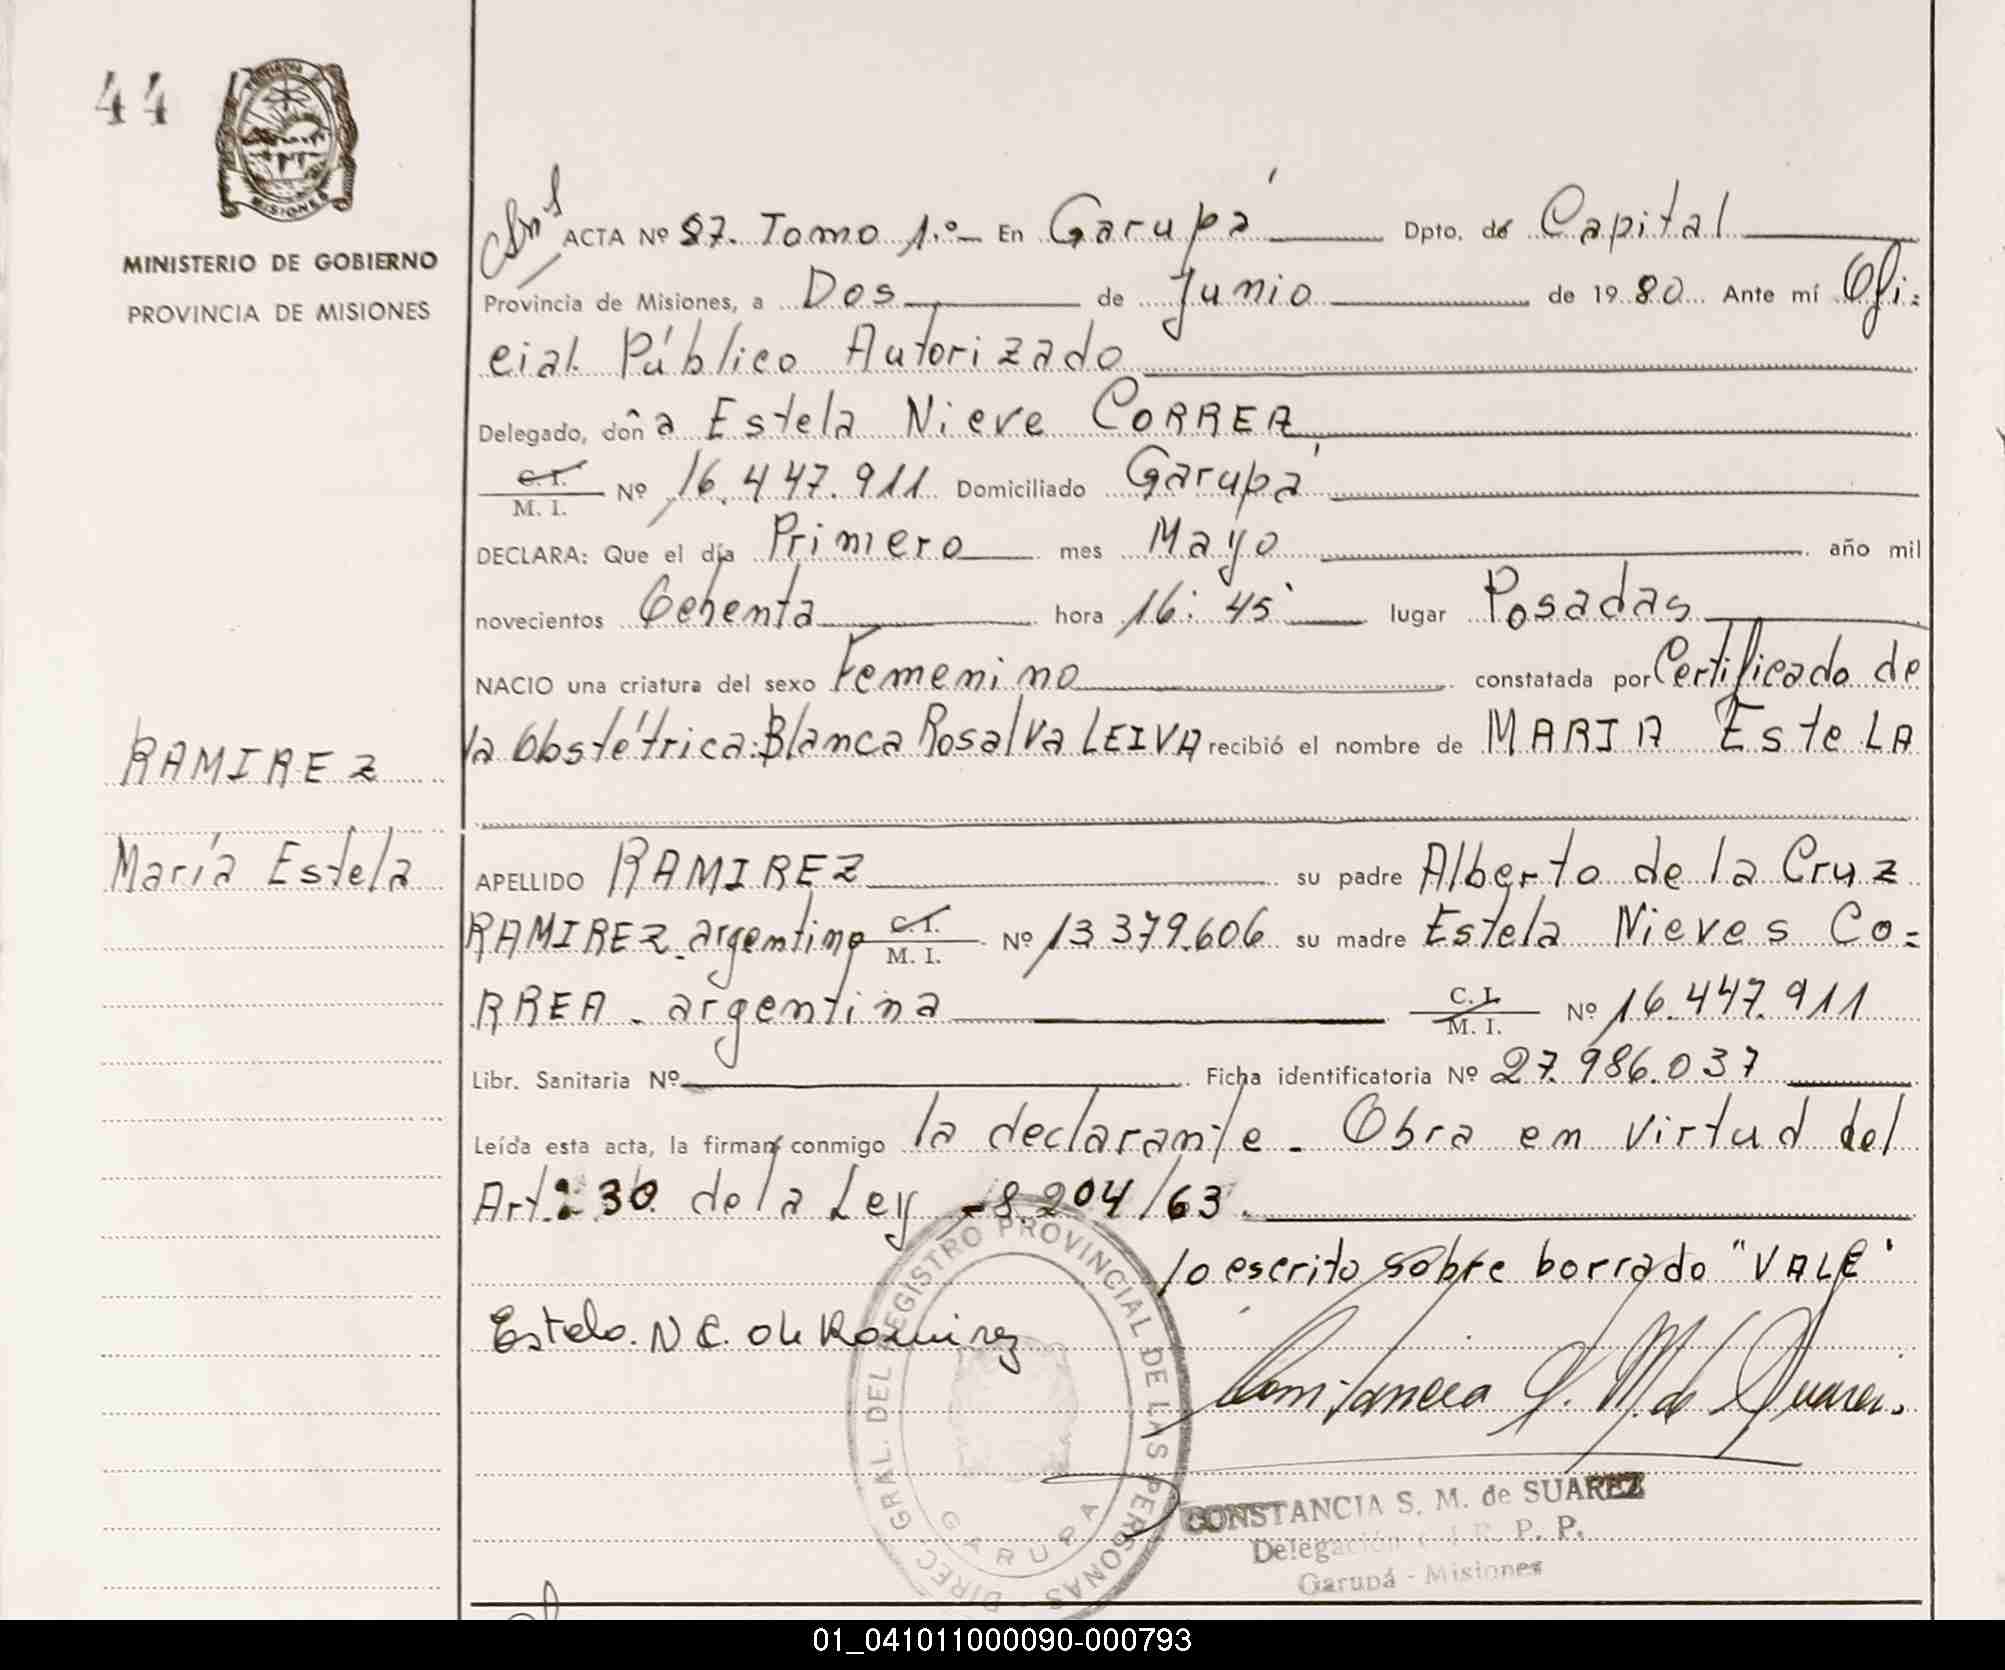 44
MISIONES
MINISTERIO DE GOBIERNO
PROVINCIA DE MISIONES
ACTA Nº 87. Tomo 1.º En Garupá Dpto. de Capital
Provincia de Misiones, a Dos de Junio de 1980 Ante mí Ofi-
cial Público Autorizado
Delegado, doña Estela Nieve CORREA
C. I. / M. I. Nº 16.447.911 Domiciliado Garupá
DECLARA: Que el día Primero mes Mayo año mil
novecientos Ochenta hora 16:45 lugar Posadas
NACIO una criatura del sexo Femenino constatada por Certificado de
la Obstétrica: Blanca Rosalva LEIVA recibió el nombre de MARIA EsteLA
RAMIREZ
María Estela
APELLIDO RAMIREZ su padre Alberto de la Cruz
RAMIREZ argentino C. I. / M. I. Nº 13.379.606 su madre Estela Nieves CO=
RREA - argentina C. I. / M. I. Nº 16.447.911
Libr. Sanitaria Nº Ficha identificatoria Nº 27.986.037
Leída esta acta, la firman conmigo la declarante - Obra en virtud del
Art. 30 de la Ley 8.204/63.
lo escrito sobre borrado "VALE"
Estela. N C. de Ramirez
Constancia S. M. de Suarez
DIREC. GRAL. DEL REGISTRO PROVINCIAL DE LAS PERSONAS
GARUPA
CONSTANCIA S. M. de SUAREZ
Delegación R. P. P.
Garupá - Misiones
01_041011000090-000793